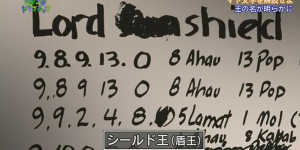 マヤ文字を解読せよ
王の名が明らかに
Lord shield
9.8.9.13.0 8 Ahau 13 Pop
9.8 9 13 0 8 Ahau 13 Pop
9.9.2.4.8. 5 Lamat 1 Mol
シールド王(盾王)